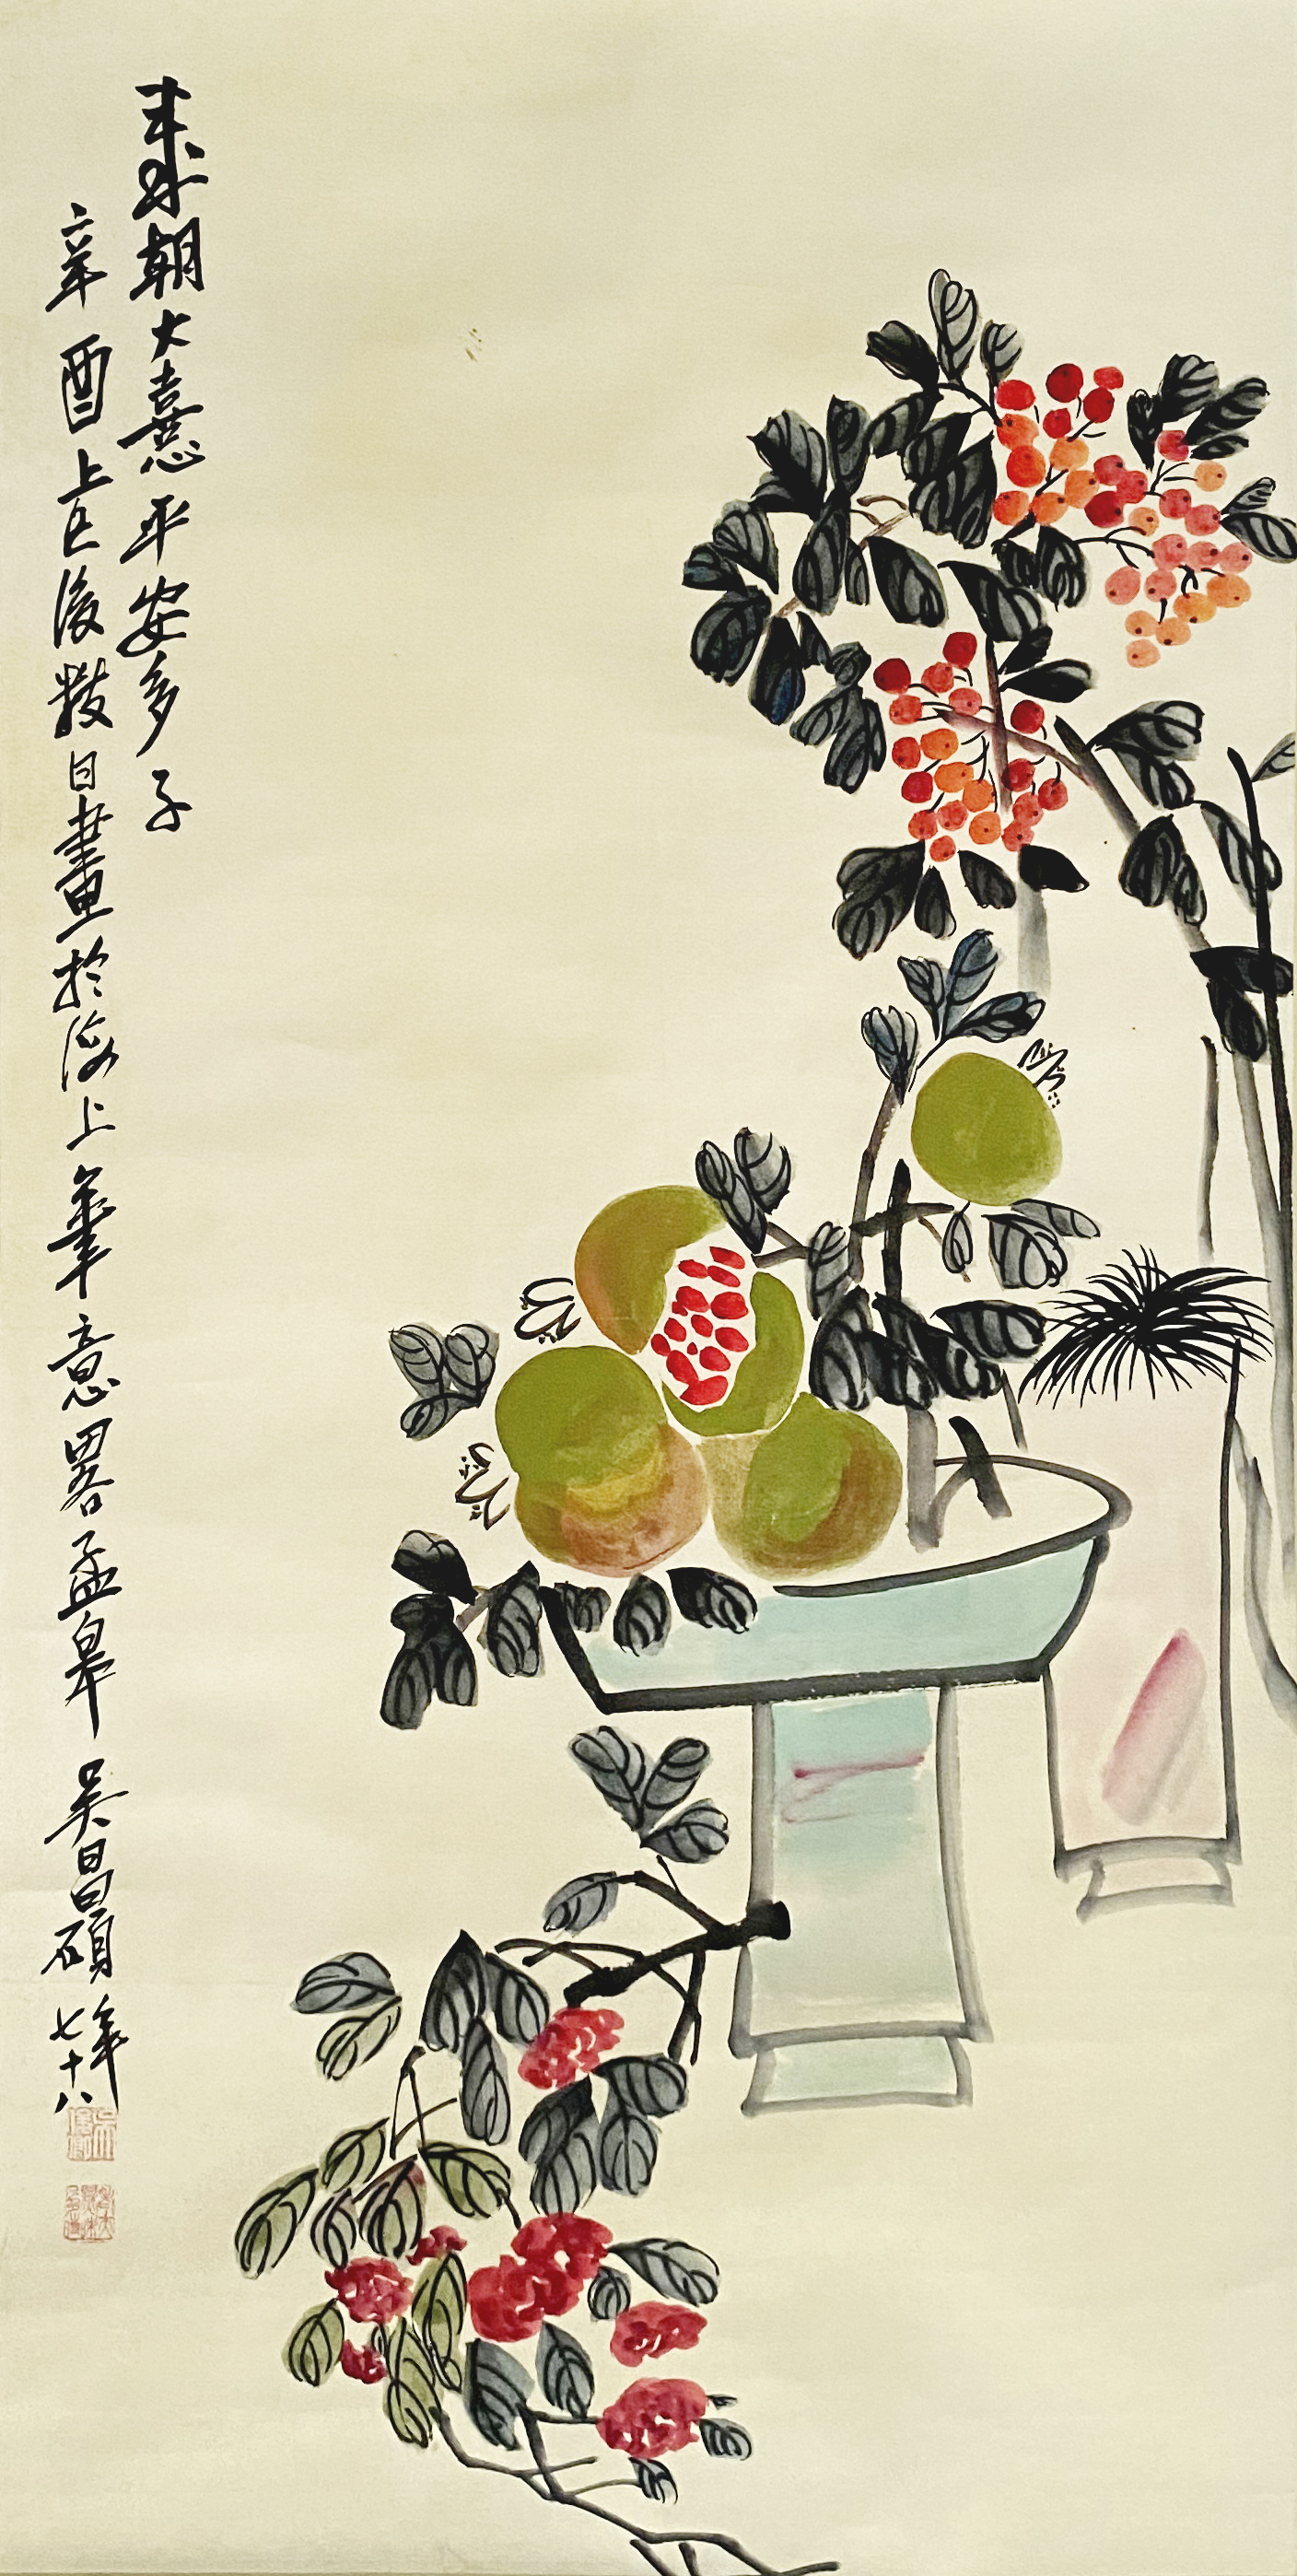 來朝大憙平安多子
辛酉上巳後數日畫於海上筆意略孟皋
吳昌碩年七十八